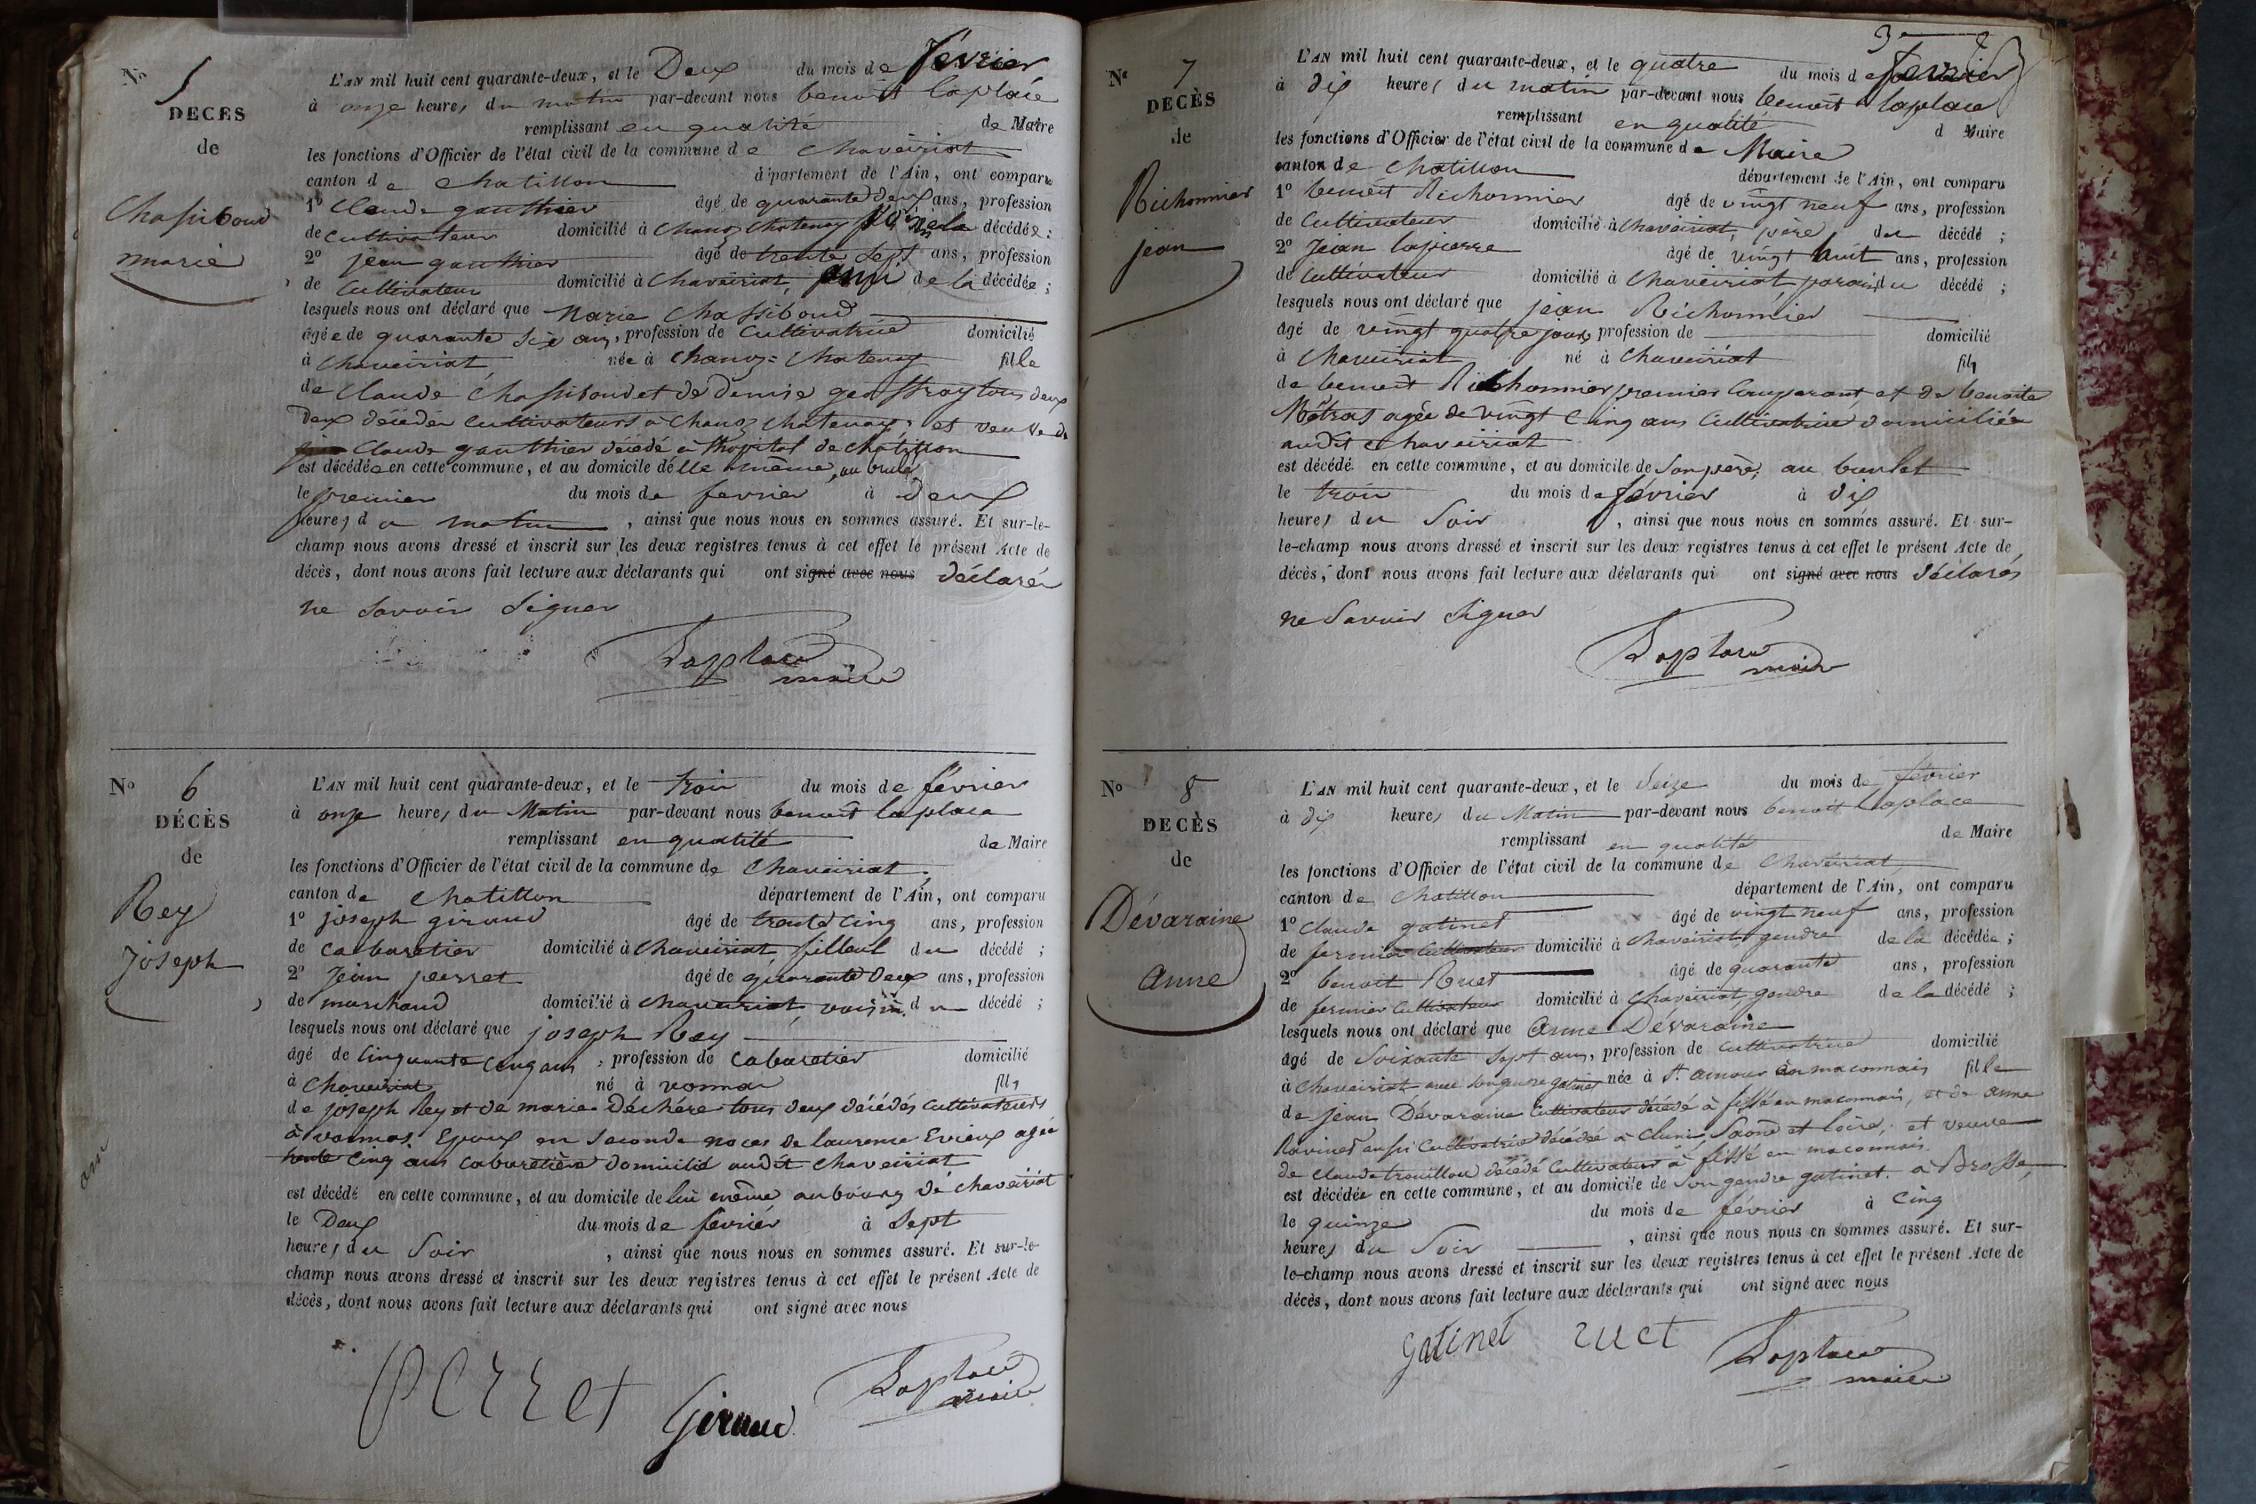 No 5
DECÈS
de
Chassiboud
marie
L'AN mil huit cent quarante-deux, et le Deux du mois de février
à onze heures du matin par-devant nous benoît laplace
remplissant en qualité de Maire
les fonctions d'Officier de l'état civil de la commune de Chaveiriat
canton de Chatillon département de l'Ain, ont comparu
1° Claude gauthier âgé de quarante deux ans, profession
de Cultivateur domicilié à Chanoz Chatenay de la décédée ;
2° jean gauthier âgé de trente sept ans, profession
de Cultivateur domicilié à Chaveiriat, ami de la décédée ;
lesquels nous ont déclaré que Marie Chassiboud
âgée de quarante six ans, profession de Cultivatrice domicilié
à Chaveiriat née à Chanoz=Chatenay fille
de Claude Chassiboud et de denise geoffray tous deux
deux décédés cultivateurs à Chanoz Chatenay, et veuve de
Claude gauthier décédé à l'hopital de chatillon
est décédée en cette commune, et au domicile d'elle même, au brulé
le premier du mois de fevrier à deux
heures du matin, ainsi que nous nous en sommes assuré. Et sur-le-
champ nous avons dressé et inscrit sur les deux registres tenus à cet effet le présent Acte de
décès, dont nous avons fait lecture aux déclarants qui ont signé avec nous déclarés
ne Savoir Signer
Laplace
maire
No 6
DÉCÈS
de
Rey
Joseph
L'AN mil huit cent quarante-deux, et le trois du mois de février
à onze heures du Matin par-devant nous benoît laplace
remplissant en qualité de Maire
les fonctions d'Officier de l'état civil de la commune de Chaveiriat
canton de Chatillon département de l'Ain, ont comparu
1° joseph giraud âgé de trente cinq ans, profession
de cabaretier domicilié à Chaveiriat, filleul du décédé ;
2° Jean perret âgé de quarante deux ans, profession
de marchand domicilié à Chaveiriat, voisin du décédé ;
lesquels nous ont déclaré que joseph Rey
âgé de Cinquante cinq ans, profession de cabaretier domicilié
à Chaveiriat né à vonnas fils
de joseph Rey et de marie Déchére tous deux décédés cultivateurs
à vonnas. Epoux en Seconde noces de laurence Evieux agée
trente cinq ans cabaretière domicilié audit chaveiriat
est décédé en cette commune, et au domicile de lui même au bourg de chaveiriat
le Deux du mois de février à Sept
heures du Soir, ainsi que nous nous en sommes assuré. Et sur-le-
champ nous avons dressé et inscrit sur les deux registres tenus à cet effet le présent Acte de
décès, dont nous avons fait lecture aux déclarants qui ont signé avec nous
perret Giraud Laplace
maire
No 7
DECÈS
de
Richonnier
jean
L'AN mil huit cent quarante-deux, et le quatre du mois de fevrier
à dix heures du matin par-devant nous benoît laplace
remplissant en qualité d Maire
les fonctions d'Officier de l'état civil de la commune de Maire
canton de Chatillon département de l'Ain, ont comparu
1° benoît Richonnier âgé de vingt neuf ans, profession
de Cultivateur domicilié à Chaveiriat, père du décédé ;
2° Jean lapierre âgé de vingt huit ans, profession
de Cultivateur domicilié à Chaveiriat parain du décédé ;
lesquels nous ont déclaré que jean Richonnier
âgé de vingt quatre jours profession de domicilié
à Chaveiriat né à Chaveiriat fils
de benoit Richonnier premier Comparant et de benoite
Métras agée de vingt Cinq ans Cultivatrice domiciliée
audit Chaveiriat
est décédé en cette commune, et au domicile de Son père, au
le trois du mois de février à dix
heures du Soir, ainsi que nous nous en sommes assuré. Et sur-
le-champ nous avons dressé et inscrit sur les deux registres tenus à cet effet le présent Acte de
décès, dont nous avons fait lecture aux déclarants qui ont signé avec nous déclarés
ne Savoir Signer
Laplace
maire
No 8
DECÈS
de
Dévaraine
Anne
L'AN mil huit cent quarante-deux, et le Seize du mois de février
à dix heures du Matin par-devant nous benoit laplace
remplissant en qualité de Maire
les fonctions d'Officier de l'état civil de la commune de Chaveiriat,
canton de Chatillon département de l'Ain, ont comparu
1° Claude gatinet âgé de vingt neuf ans, profession
de fermier Cultivateur domicilié à chaveiriat, gendre de la décédée ;
2° benoit Ruet âgé de quarante ans, profession
de fermier Cultivateur domicilié à Chaveiriat, gendre de la décédé ;
lesquels nous ont déclaré que Anne Dévaraine
âgé de Soixante Sept ans, profession de cultivatrice domicilié
à Chaveiriat avec Son gendre gatinet née à St. amour en maconnais fille
de jean Dévaraine Cultivateur décédé à fissé en maconnais, et de anne
Ravinet aussi Cultivatrice décédée à Cluni, Saone et loire, et veuve
de Claude trouillou décédé Cultivateur à fissé en maconnais
est décédée en cette commune, et au domicile de Son gendre gatinet. à Brosse,
le quinze du mois de février à Cinq
heures du Soir, ainsi que nous nous en sommes assuré. Et sur-
le-champ nous avons dressé et inscrit sur les deux registres tenus à cet effet le présent Acte de
décès, dont nous avons fait lecture aux déclarants qui ont signé avec nous
gatinet ruet Laplace
maire